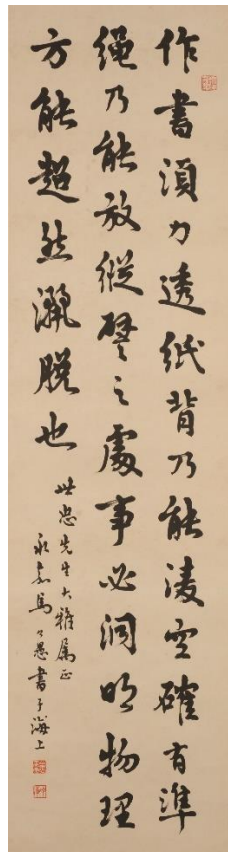 作書須力透紙背乃能淩空確有準
繩乃能放縱譬之處事必洞明物理
方能超然灑脫也
世忠先生大雅屬正
永嘉馬公愚書于海上